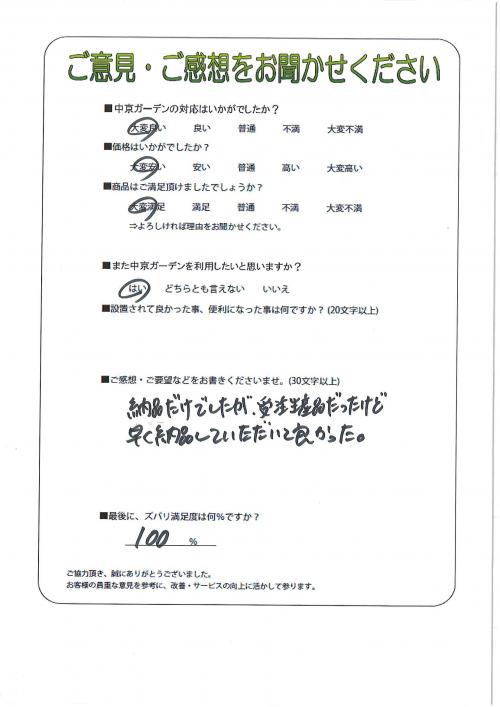 ご意見・ご感想をお聞かせください
■中京ガーデンの対応はいかがでしたか？
大変良い 良い 普通 不満 大変不満
■価格はいかがでしたか？
大変安い 安い 普通 高い 大変高い
■商品はご満足頂けましたでしょうか？
大変満足 満足 普通 不満 大変不満
⇒よろしければ理由をお聞かせください。
■また中京ガーデンを利用したいと思いますか？
はい どちらとも言えない いいえ
■設置されて良かった事、便利になった事は何ですか？(20文字以上)
■ご感想・ご要望などをお書きくださいませ。(30文字以上)
納品だけでしたが、受注生産品だったけど
早く納品していただいて良かった。
■最後に、ズバリ満足度は何％ですか？
100 ％
ご協力頂き、誠にありがとうございました。
お客様の貴重な意見を参考に、改善・サービスの向上に活かして参ります。